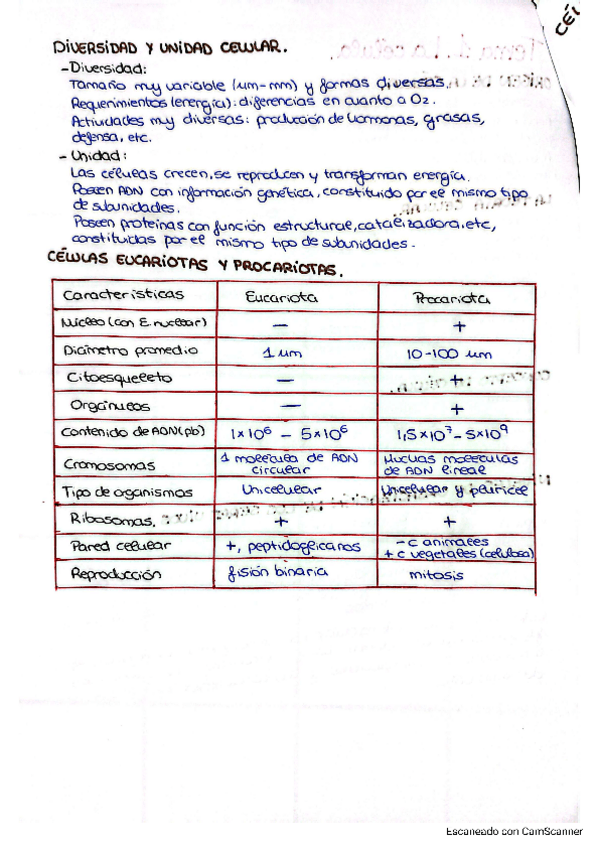 CÉL
DIVERSIDAD Y UNIDAD CELULAR.
-Diversidad:
Tamaño muy variable (µm-mm) y formas diversas.
Requerimientos (energía): diferencias en cuanto a O2.
Actividades muy diversas: producción de hormonas, grasas,
defensa, etc.
- Unidad:
Las células crecen, se reproducen y transforman energía.
Poseen ADN con información genética, constituido por el mismo tipo
de subunidades.
Poseen proteínas con función estructural, catalizadora, etc,
constituidas por el mismo tipo de subunidades.
CÉLULAS EUCARIOTAS Y PROCARIOTAS.
Características Eucariota Procariota
Núcleo (con E. nuclear) — +
Diámetro promedio 1 µm 10-100 µm
Citoesqueleto — +
Orgánulos — +
Contenido de ADN (pb) 1x10⁶ - 5x10⁶ 1,5x10⁷ - 5x10⁹
Cromosomas 1 molécula de ADN circular Muchas moléculas de ADN lineal
Tipo de organismos Unicelular Unicelular y pluricel
Ribosomas. + +
Pared celular +, peptidoglicanos - c animales + c vegetales (celulosa)
Reproducción fisión binaria mitosis
Escaneado con CamScanner